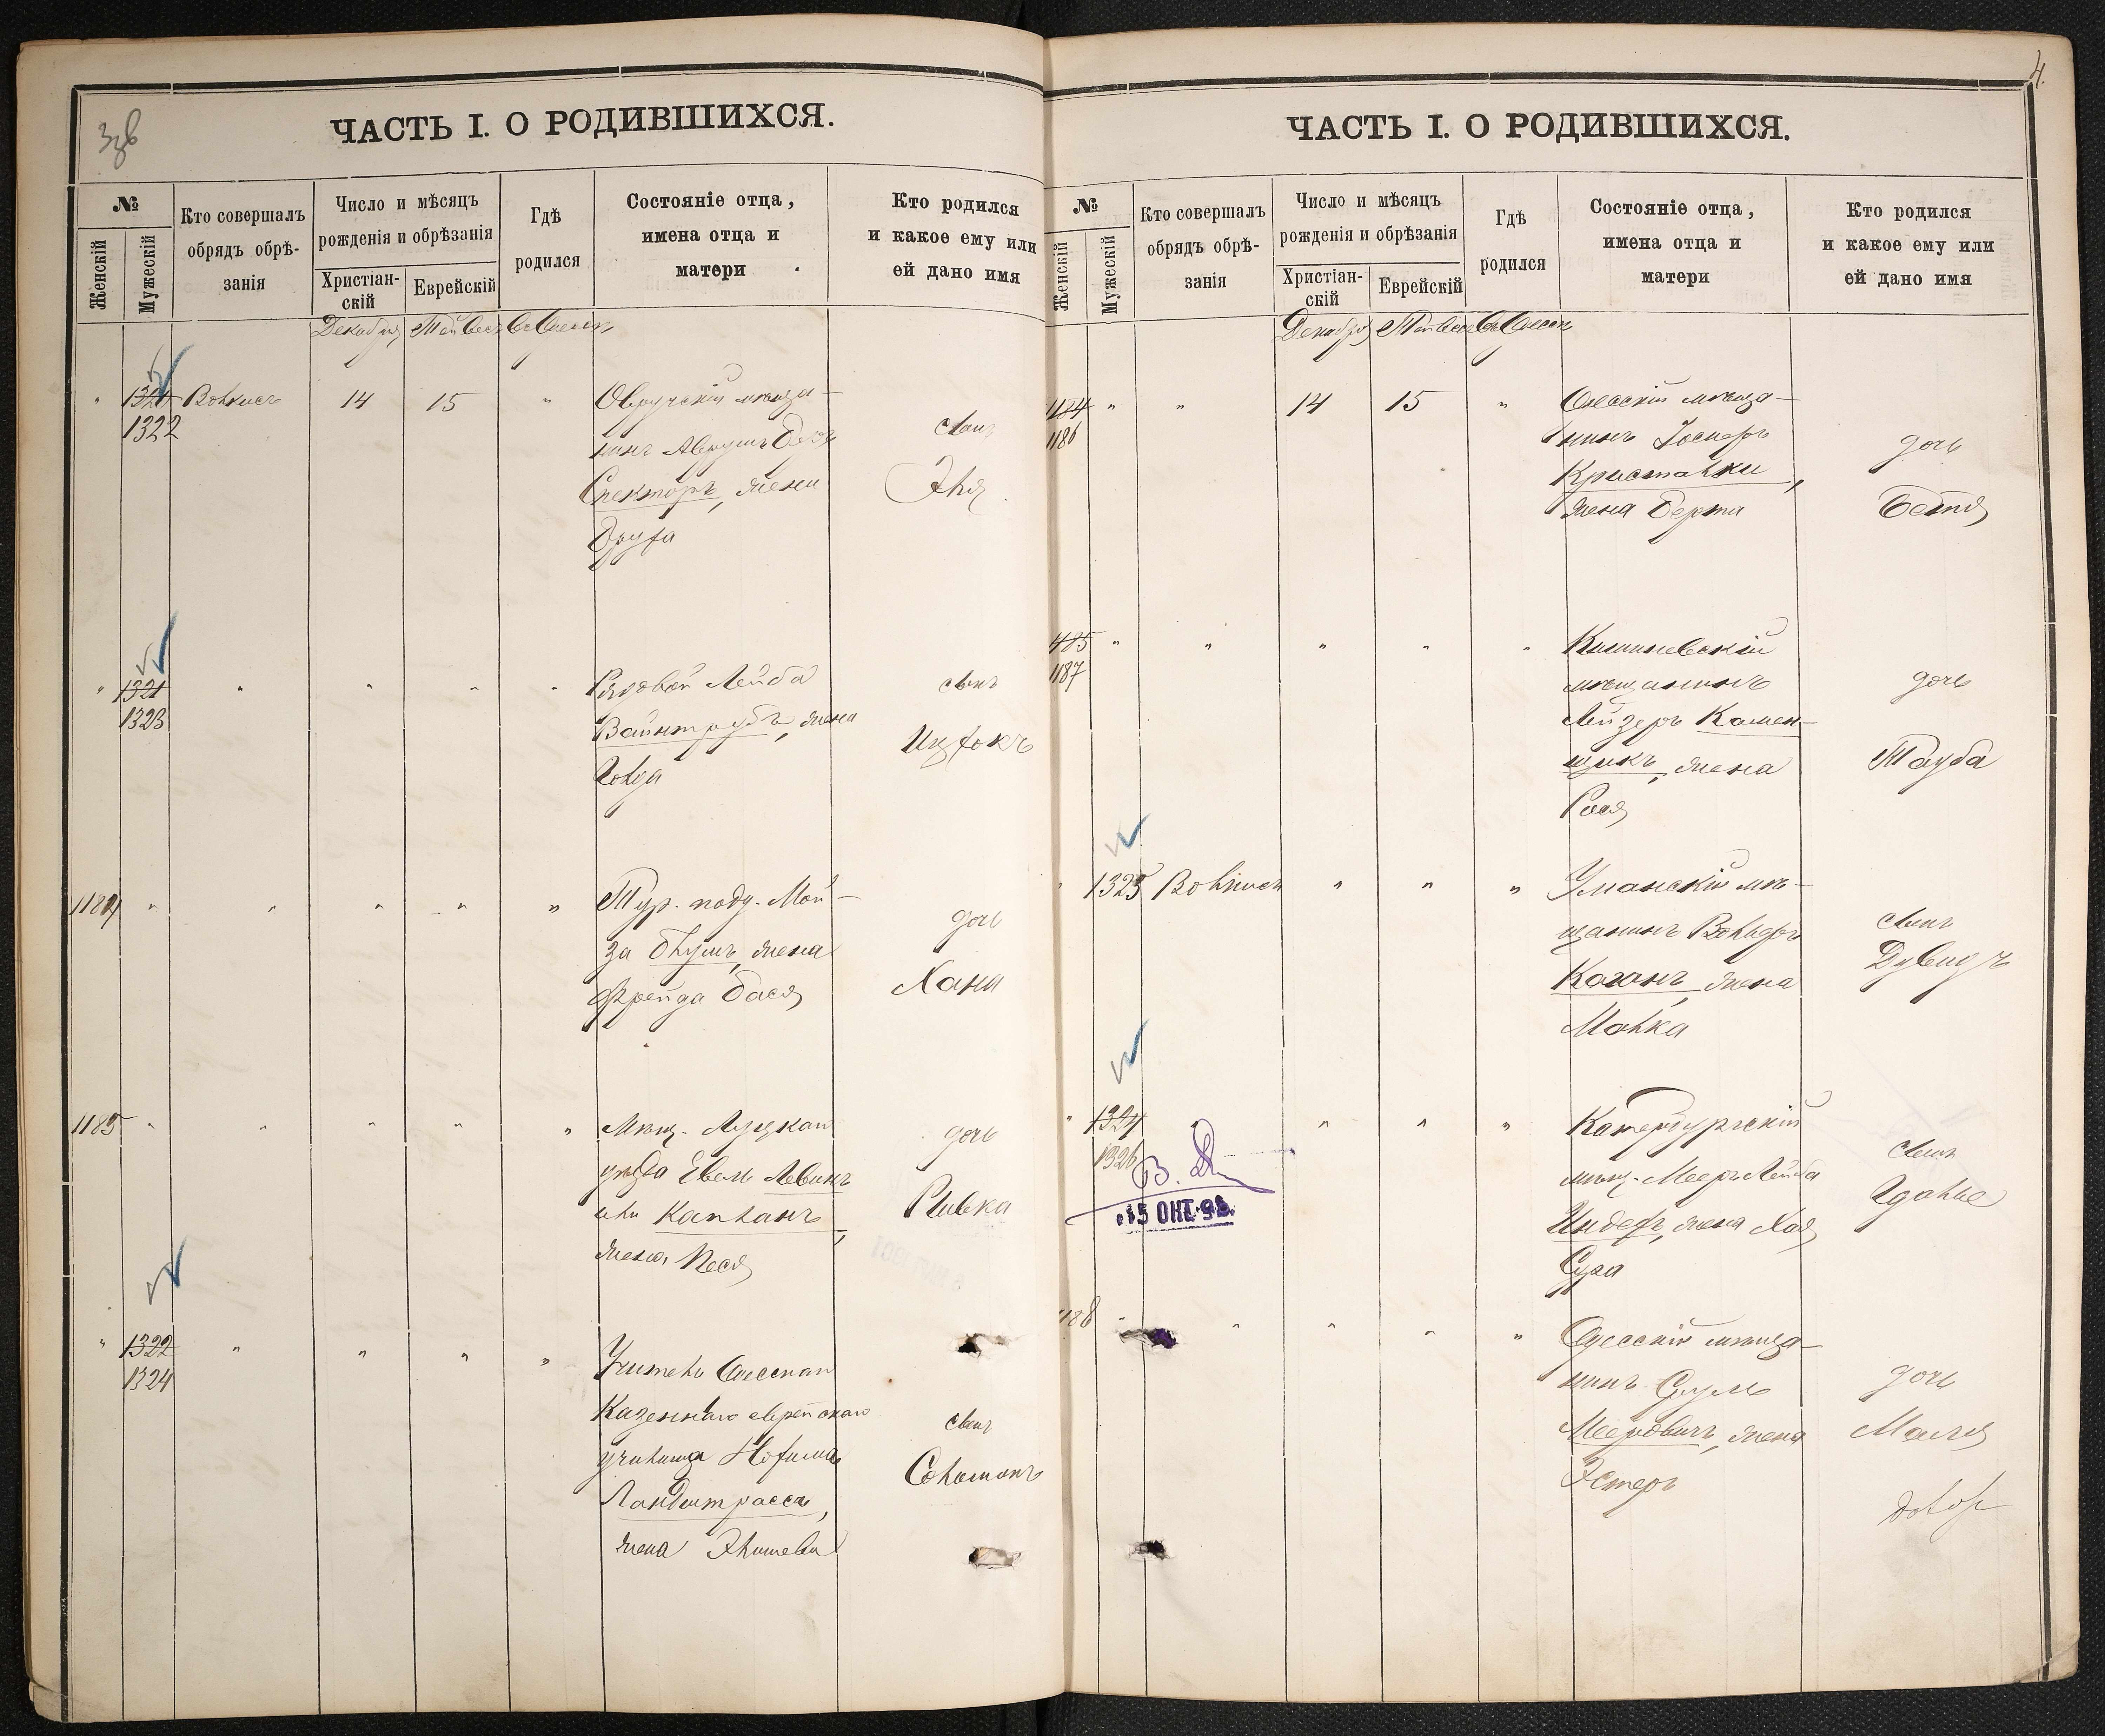 Ззв
ЧАСТЬ I. О РОДИВШИХСЯ.
№
Женскій
Мужескій
Кто совершалъ
обрядъ обрѣ-
занія
Число и мѣсяцъ
рожденія и обрѣзанія
Христіан-
скій
Еврейскій
Гдѣ
родился
Состояніе отца,
имена отца и
матери
Кто родился
и какое ему или
ей дано имя
Декабрь Тейвесъ Въ Одессѣ
1322 14 15 "
Овручскій мѣща-
нинъ Аврумъ
Спекторъ, жена
Друза
сынъ
Эля
" 1321 " " " "
1323
Рядовой Лейба
Вайнтрубъ, жена
Голда
сынъ
Ицхокъ
1184 " " " " "
Тур. подд. Мой-
за Блумъ, жена
Фрейда Бася
дочь
Хана
1185 " " " " "
Мѣщ. Луцкаго
уѣзда Евель Левинъ
или Капланъ,
жена Песя
дочь
Ривка
" 1322 " " " "
1324
Учитель Одесскаго
Казеннаго еврейскаго
училища Нохима
Ландштрасса,
жена Элишева
сынъ
Соломонъ
4.
ЧАСТЬ I. О РОДИВШИХСЯ.
№
Женскій
Мужескій
Кто совершалъ
обрядъ обрѣ-
занія
Число и мѣсяцъ
рожденія и обрѣзанія
Христіан-
скій
Еврейскій
Гдѣ
родился
Состояніе отца,
имена отца и
матери
Кто родился
и какое ему или
ей дано имя
Декабрь Тейвесъ Въ Одессѣ
1184 " " 14 15 "
1186
Одесскій мѣща-
нинъ Іосиферъ
Кристалки,
жена Берта
дочь
Бетя
1185 " " " " "
1187
Кишиневскій
мѣщанинъ
Лейзеръ Камен-
щикъ, жена
Рося
дочь
Тауба
" 1325 " " "
Уманскій мѣ-
щанинъ Вольфъ
Коганъ, жена
Малка
сынъ
Дувидъ
" 1324 " " "
1326
15 ОКТ. 98.
Катербургскій
мѣщ. Мееръ Лейба
жена Хая
Сура
сынъ
Гдалье
1188 " " " " "
Одесскій мѣща-
нинъ Сруль
Мееровичъ, жена
Эстеръ
дочь
Малья